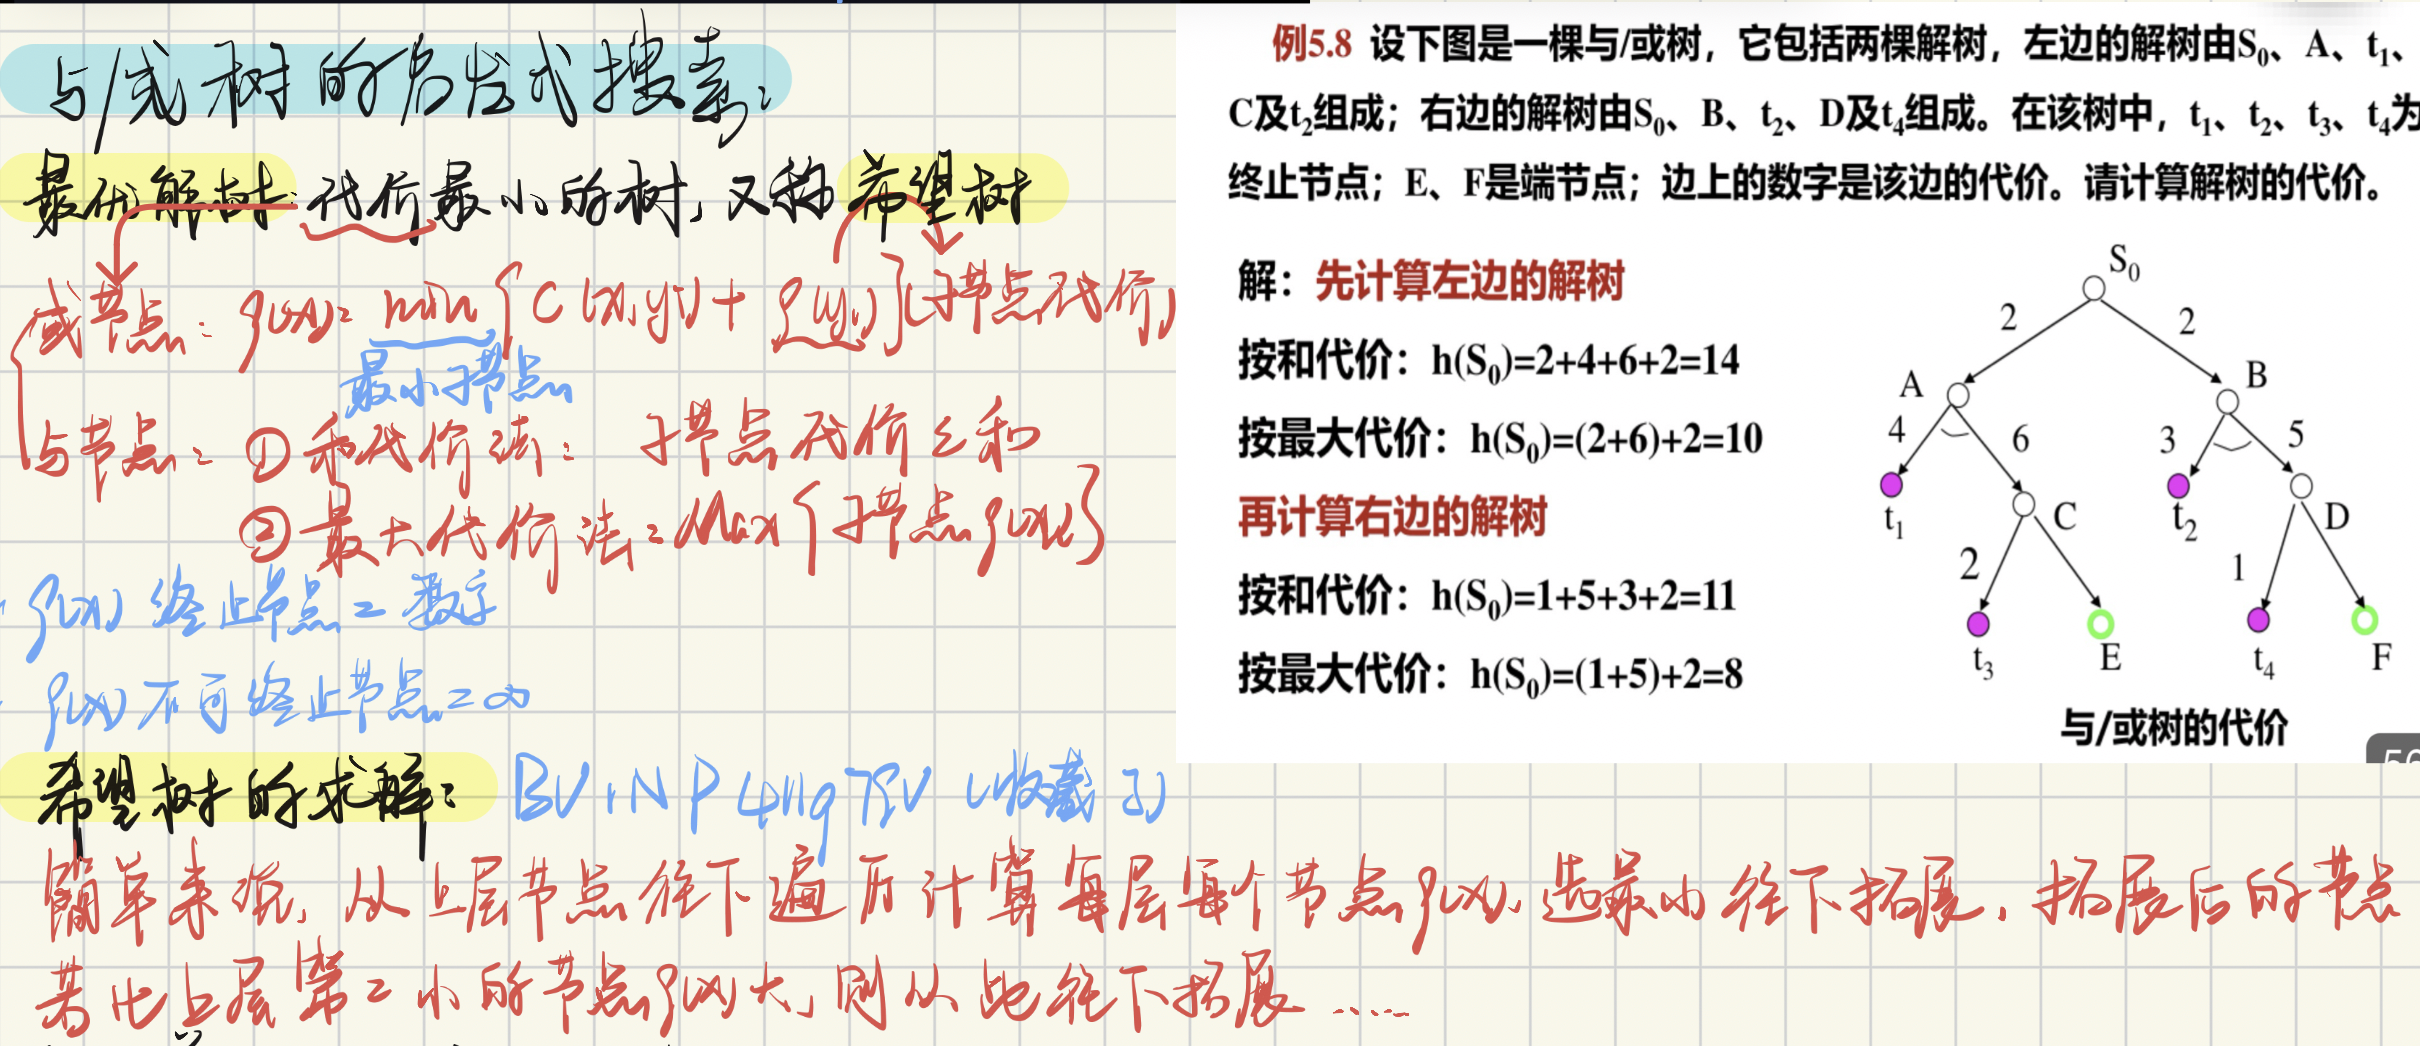 与/或树的启发式搜索:
最优解树: 代价最小的树, 又称希望树
或节点: g(x)= min{C(x,y)+g(y)}(子节点代价)
最小子节点
与节点: ①和代价法: 子节点代价之和
②最大代价法: Max{子节点g(x)}
g(x) 终止节点 = 数字
g(x) 不可终止节点 = ∞
希望树的求解:
(收藏了)
简单来说, 从上层节点往下遍历计算每层每个节点g(x), 选最小往下拓展, 拓展后的节点
若比上层第二小的节点g(x)大, 则从此往下拓展......
例5.8 设下图是一棵与/或树，它包括两棵解树，左边的解树由S₀、A、t₁、
C及t₂组成；右边的解树由S₀、B、t₂、D及t₄组成。在该树中，t₁、t₂、t₃、t₄为
终止节点；E、F是端节点；边上的数字是该边的代价。请计算解树的代价。
解：先计算左边的解树
按和代价：h(S₀)=2+4+6+2=14
按最大代价：h(S₀)=(2+6)+2=10
再计算右边的解树
按和代价：h(S₀)=1+5+3+2=11
按最大代价：h(S₀)=(1+5)+2=8
S₀
2 2
A B
4 6 3 5
t₁ C t₂ D
2 1
t₃ E t₄ F
与/或树的代价